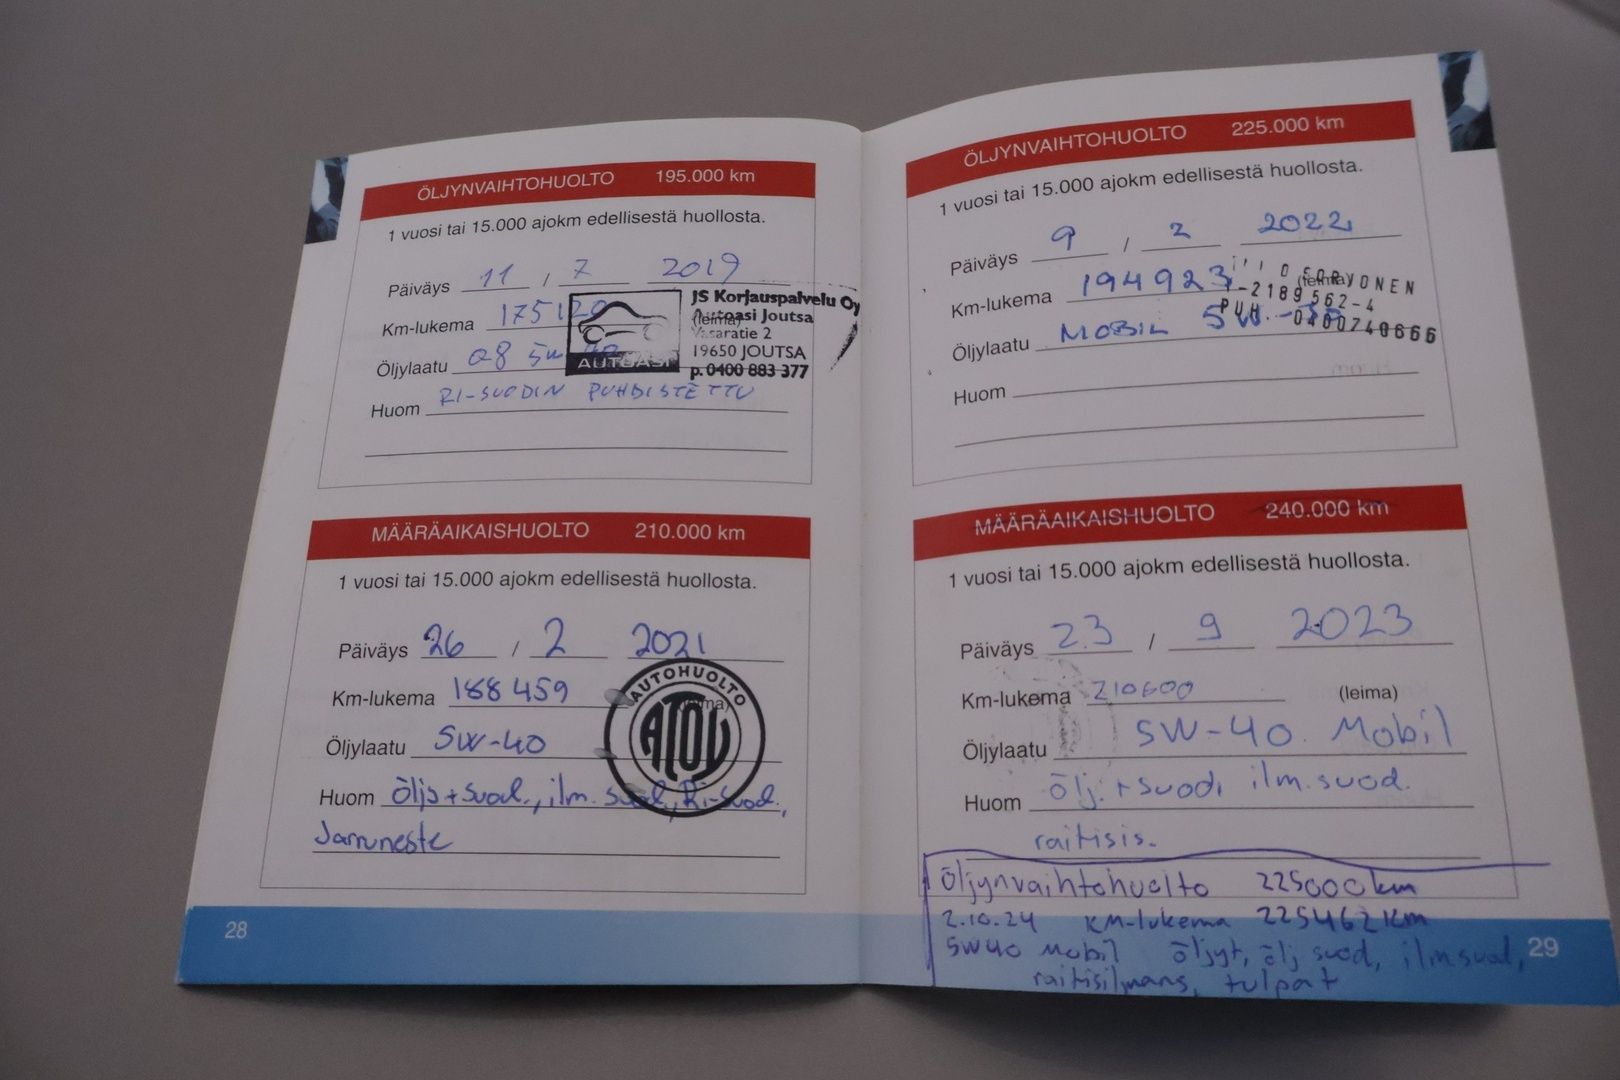 ÖLJYNVAIHTOHUOLTO 195.000 km
1 vuosi tai 15.000 ajokm edellisestä huollosta.
Päiväys 11 / 7 2019
Km-lukema 175120
(leima)
JS Korjauspalvelu Oy
Autoasi Joutsa
Vasaratie 2
19650 JOUTSA
p. 0400 883 377
AUTOASI
Öljylaatu Q8 5w 40
Huom RI-SUODIN PUHDISTETTU
MÄÄRÄAIKAISHUOLTO 210.000 km
1 vuosi tai 15.000 ajokm edellisestä huollosta.
Päiväys 26 / 2 2021
Km-lukema 188459
(leima)
AUTOHUOLTO
ATOY
Öljylaatu 5W-40
Huom öljy + suod., ilm. suod., Ri-suod.,
Jarruneste
28
ÖLJYNVAIHTOHUOLTO 225.000 km
1 vuosi tai 15.000 ajokm edellisestä huollosta.
Päiväys 9 / 2 2022
Km-lukema 194923
(leima)
SORVONEN
-2189562-4
PUH. 0400740666
Öljylaatu MOBIL 5W-
Huom
MÄÄRÄAIKAISHUOLTO 240.000 km
1 vuosi tai 15.000 ajokm edellisestä huollosta.
Päiväys 23 / 9 2023
Km-lukema 210600 (leima)
Öljylaatu 5W-40. Mobil
Huom ölj. + suod, ilm. suod.
raitisis.
öljynvaihtohuolto 225000km
2.10.24 KM-lukema 225462 km
5W40 Mobil öljyt, ölj suod, ilmsuod,
raitisilmans, tulpat
29